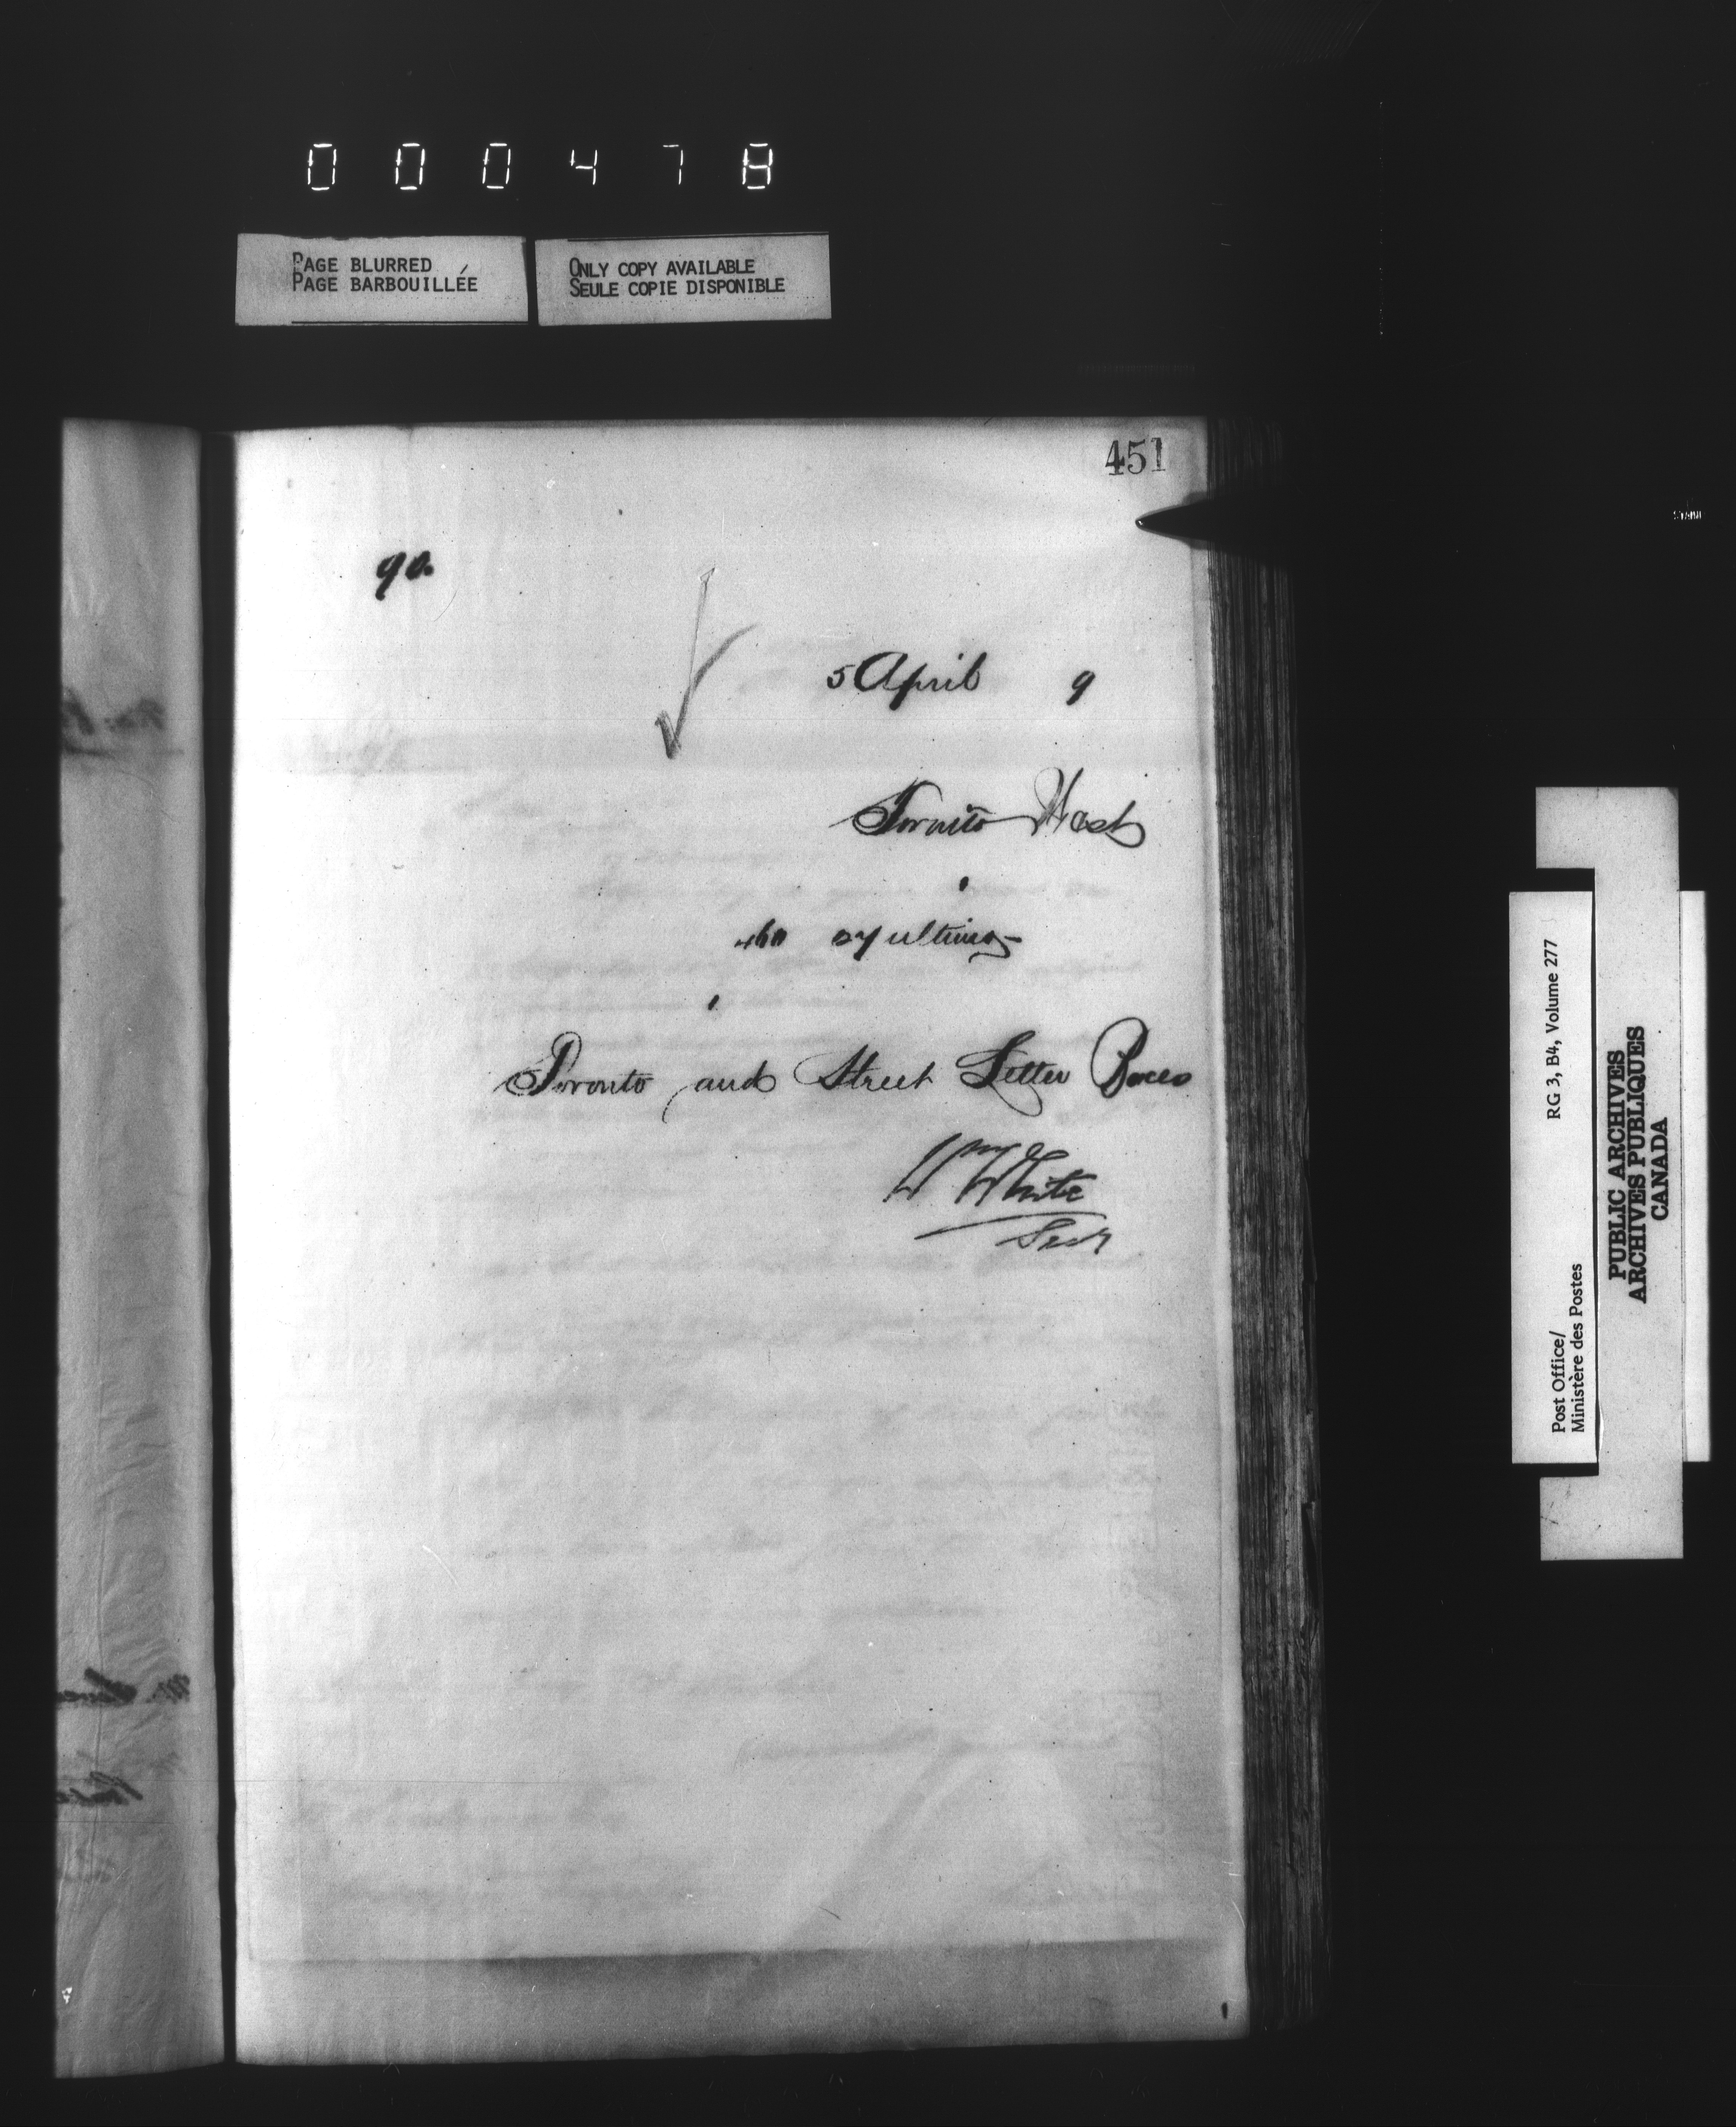 000478
PAGE BLURRED
PAGE BARBOUILLÉE
ONLY COPY AVAILABLE
SEULE COPIE DISPONIBLE
451
90.
5 April 9
Toronto West
460 27 ultimo
Toronto and Street Letter Boxes
Wm White
Secy
Post Office/
Ministère des Postes
RG 3, B4, Volume 277
PUBLIC ARCHIVES
ARCHIVES PUBLIQUES
CANADA